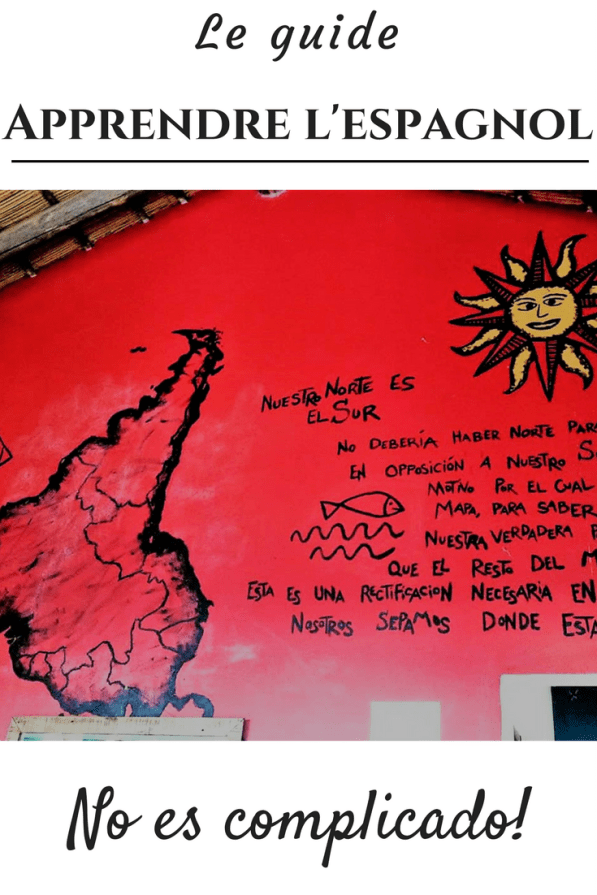 Le guide
APPRENDRE L'ESPAGNOL
NUESTRO NORTE ES
EL SUR
NO DEBERÍA HABER NORTE
EN OPPOSICIÓN A NUESTRO
MOTIVO POR EL CUAL
MAPA, PARA SABER
NUESTRA VERDADERA
QUE EL RESTO DEL
ESTA ES UNA RECTIFICACION NECESARIA EN
NOSOTROS SEPAMOS DONDE
No es complicado!